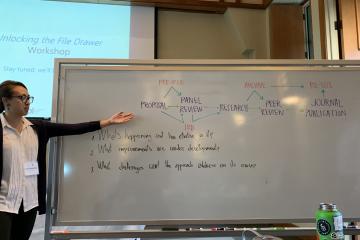 Unlocking the File Drawer
Workshop
Stay tuned: we'll
ARCHIVE
PROPOSAL PANEL REVIEW RESEARCH PEER REVIEW JOURNAL PUBLICATION
1. What's happening and how effective is it?
2. What improvements are under development?
3. What challenges can't the approach address on its own?